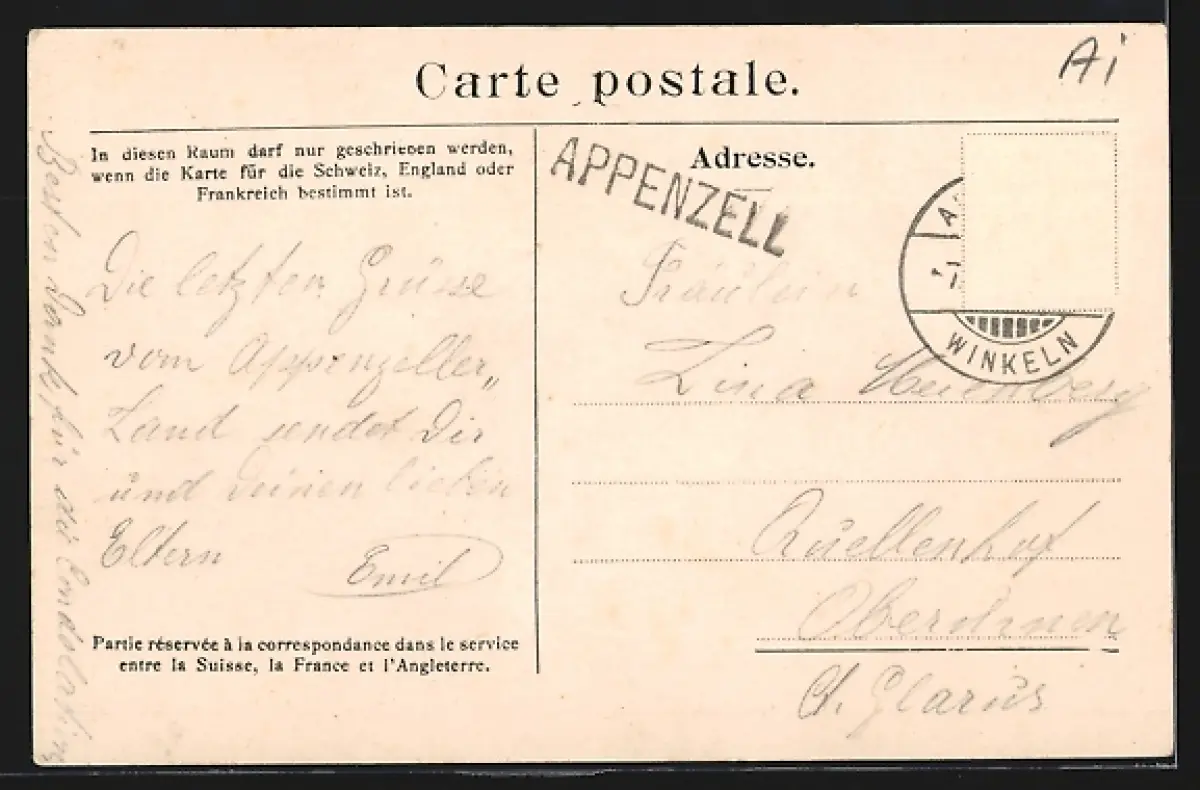 Carte postale.
Ai
In diesen Raum darf nur geschrieben werden,
wenn die Karte für die Schweiz, England oder
Frankreich bestimmt ist.
APPENZELL
Adresse.
WINKELN
Die letzten Grüsse
vom Appenzeller„
Land sendet Dir
und Deinen lieben
Eltern
Emil
Partie réservée à la correspondance dans le service
entre la Suisse, la France et l'Angleterre.
Besten Dank für die
Fräulein
Lina
Quellenhof
Oberurnen
Ct. Glarus